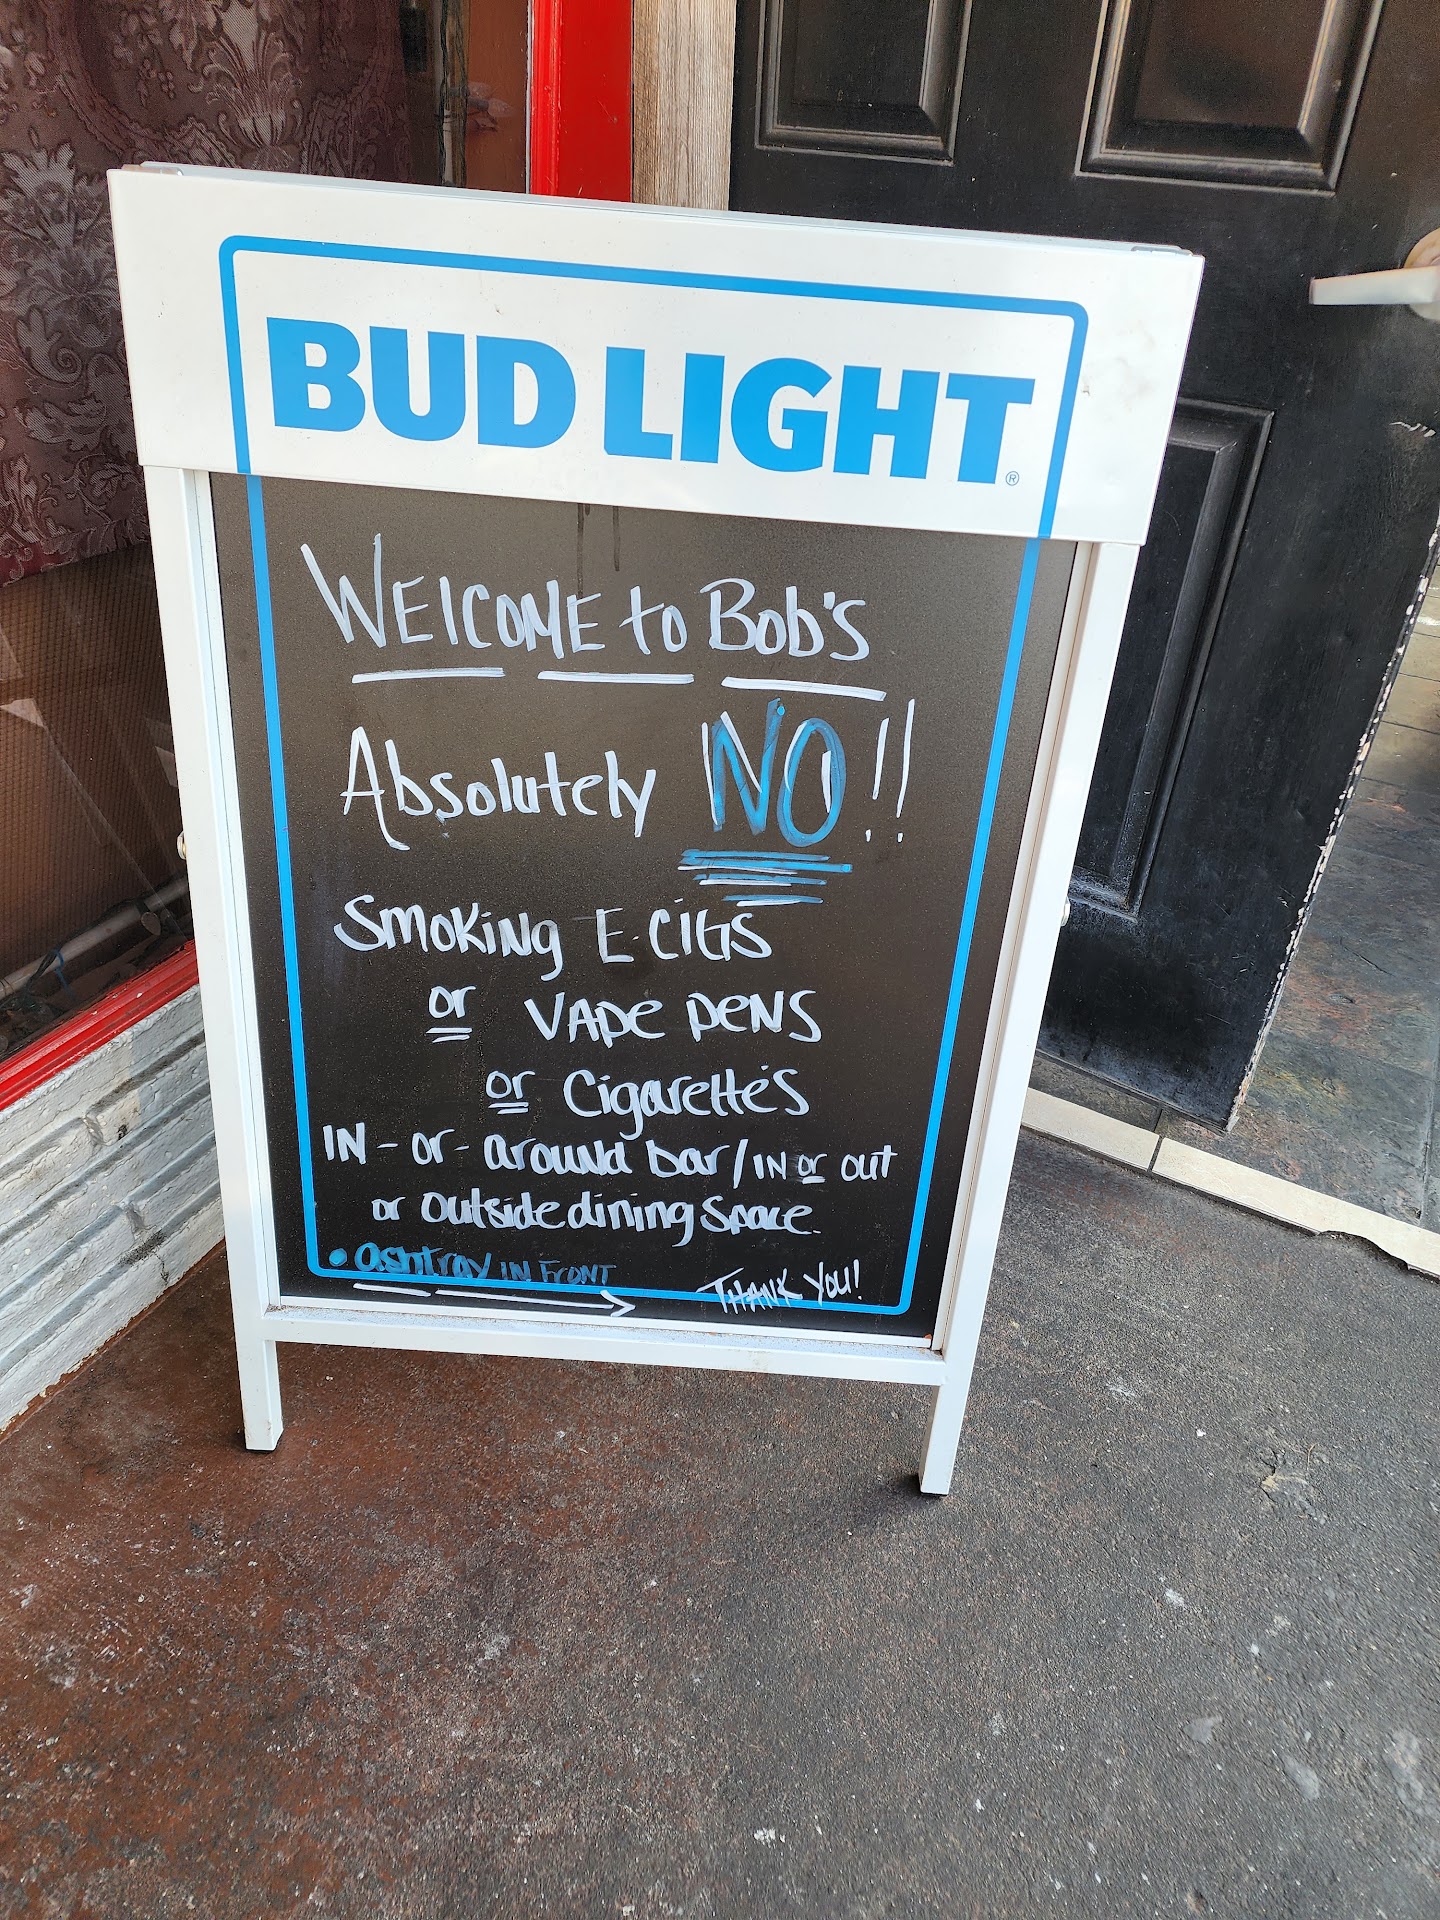 BUD LIGHT®
WELCOME to Bob's
Absolutely NO!!
Smoking E-CIGS
or VAPE PENS
or Cigarette's
IN - or - around bar / IN or out
or outside dining Space.
• ashtray IN FRONT
THANK YOU!